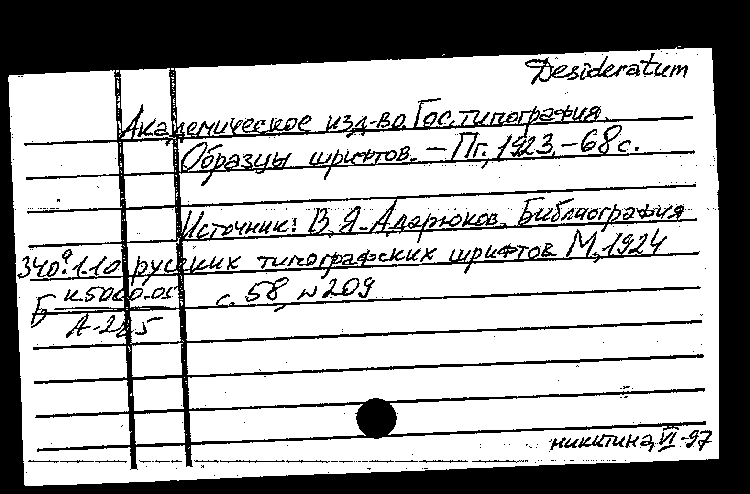 Desideratum
Академическое изд-во. Гос. типография.
Образцы шрифтов. – Пг., 1923. – 68 с.
Источник: В. Я. Адарюков. Библиография
русских типографских шрифтов М., 1924
с. 58, № 209
Б
никитина, VI-97